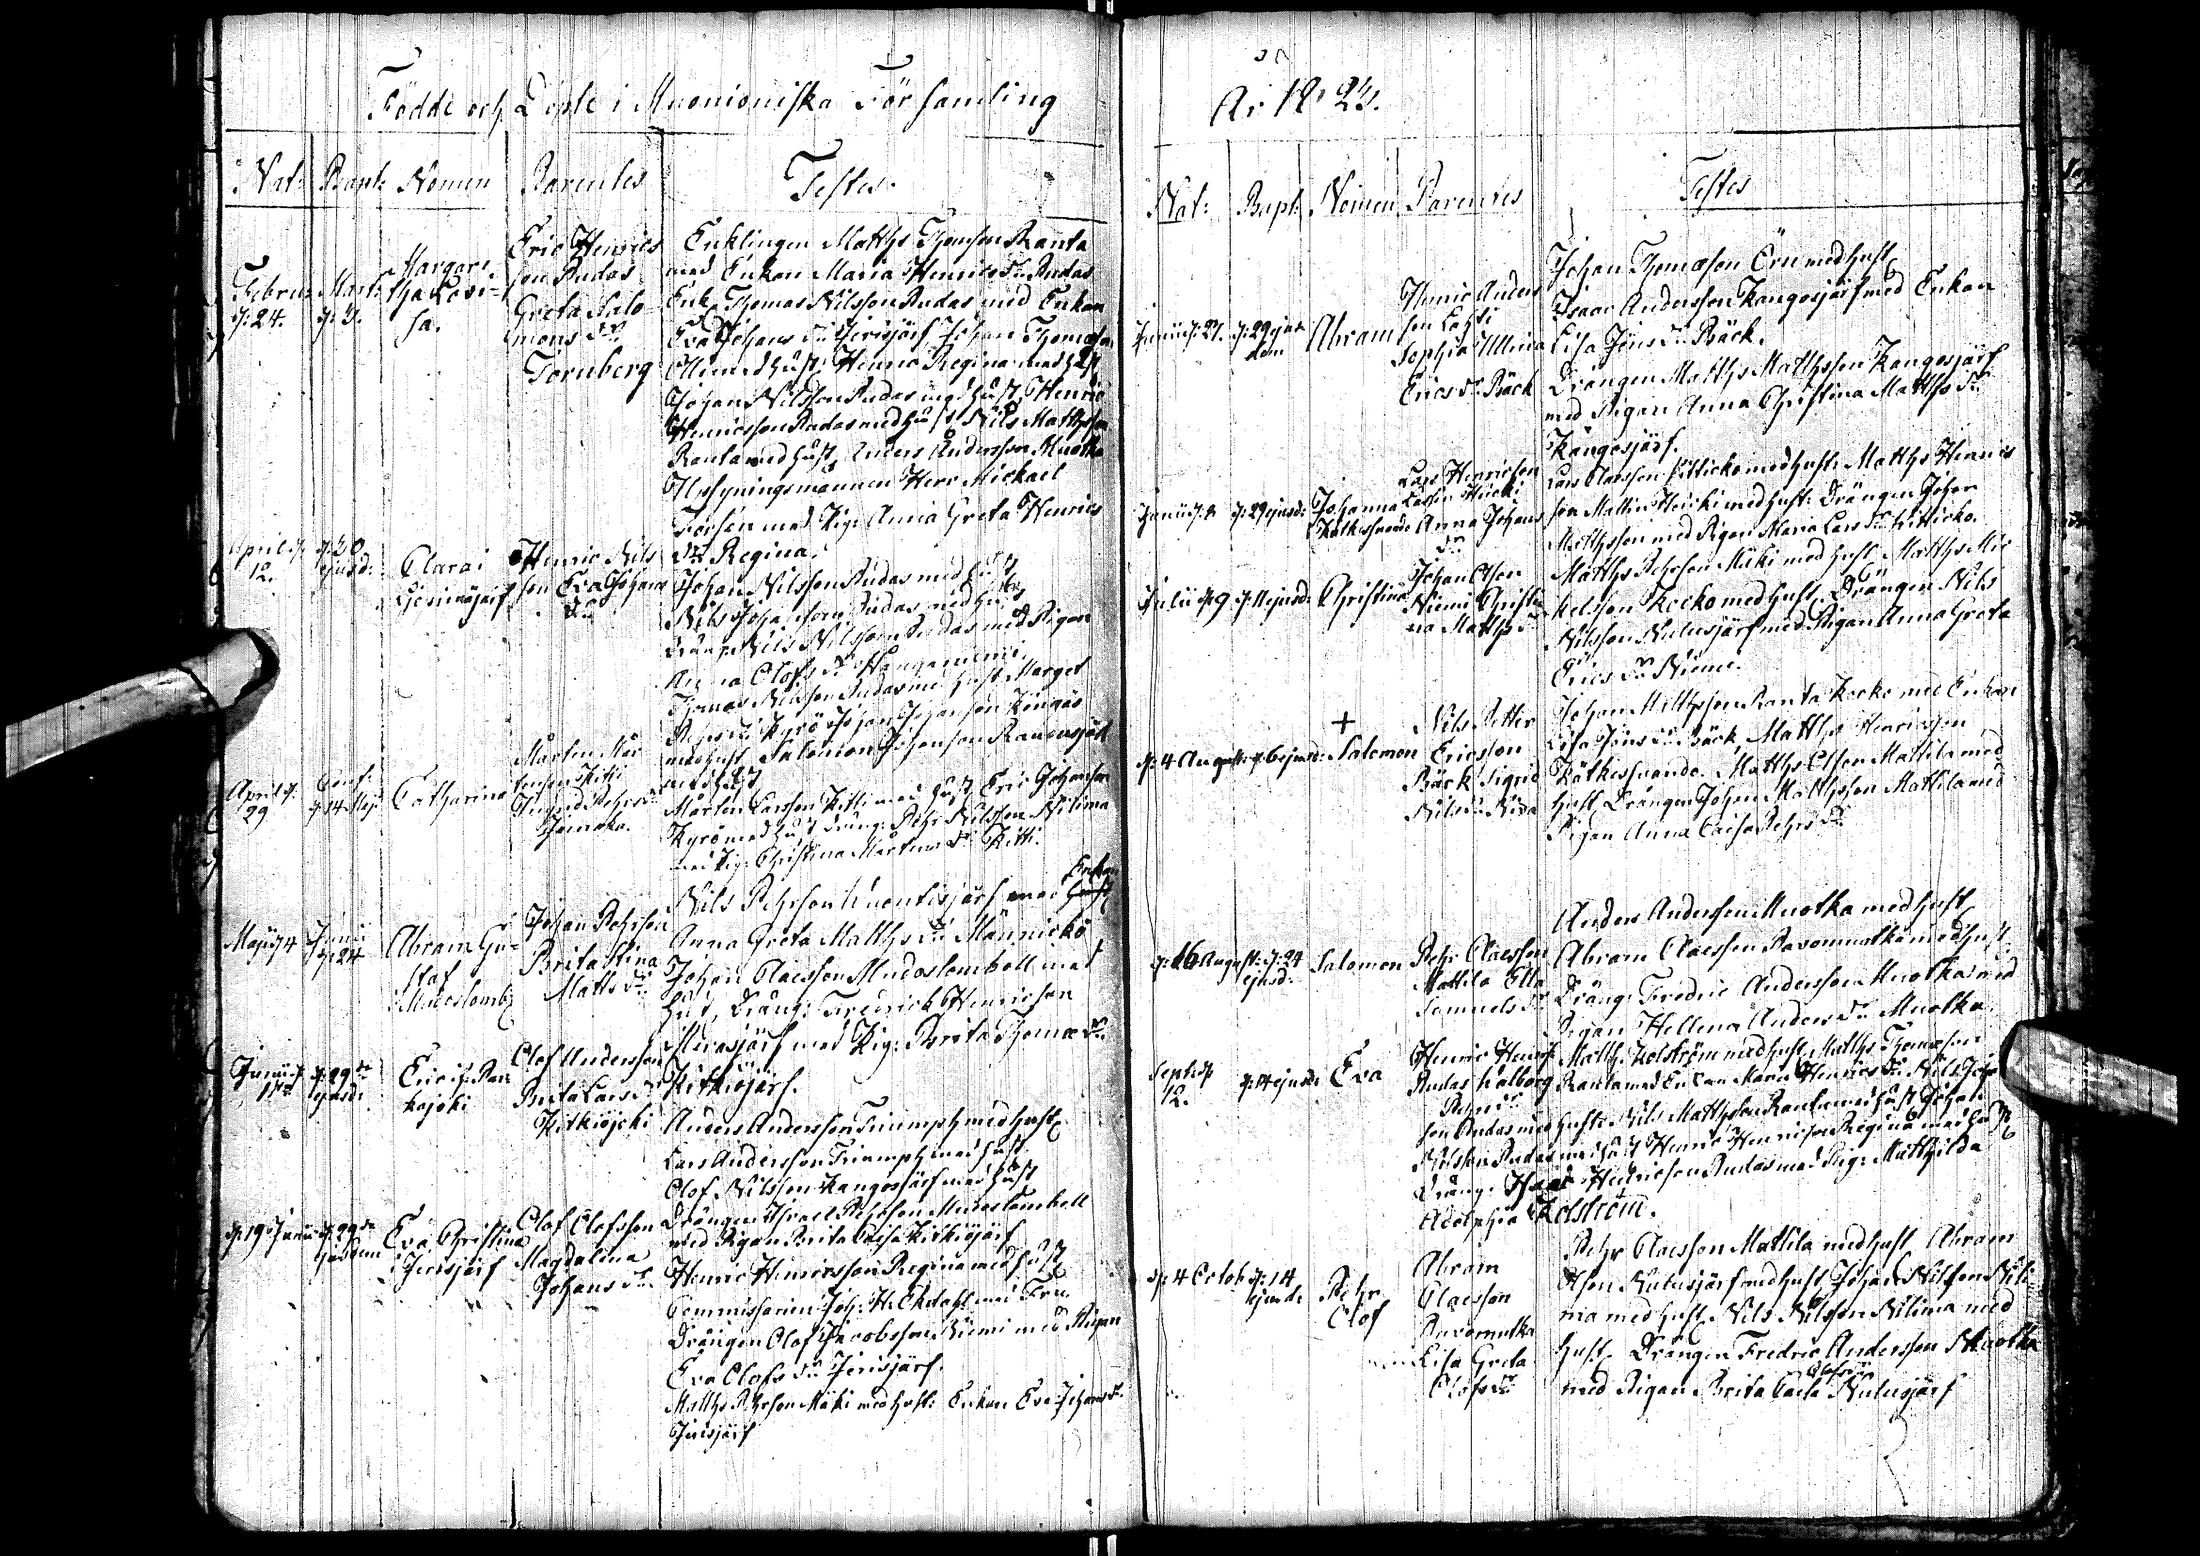 Födde och Döpte i Muonioniska Församling
Nat: Bapt: Nomen Parentes Testes.
Februar: d: 24. Mart: d: 3. Margare-
tha Lovi-
sa.
Eric Henrics
son Rudas
Greta Salo-
mons Dr
Tornberg
Enklingen Matths Thomson Ranta
med Enkan Maria Henrics Dr Rudas
Enk. Thomas Nilsson Rudas med Enkan
Eva Johans Dr Jerisjärf Johan Thomæson
med Hust. Henric Regina med Hust
Johan Nilsson Rudas med Hust Henric
Henricsson Rudas med Hust Nils Matthsson
Ranta med Hust, Anders Andersson Muotka
Herr Michael
Forsén med Pig: Anna Greta Henrics
Dr Regina.
April d. 12. d: 20 ejusd: Clara i
Jerisjärf
Henric Nils
son Eva Johans
Dr
Johan Nilsson Rudas med Hust
Nils Johansson Rudas med Hust
Dräng: Nils Nilsson Rudas med Pigan
Anna Olofs Dr Hangeniemi.
Thomas Nilsson Rudas med Hust Marget
Pehrs Dr Kyrö Johan Johansson Köngäs
med Hust, Salomon Johansson Rauvusjärf
med Hust
April d. 29 d: 14 Maji Catharina
Mårten Mår
tensson Kitti
Ingrid Pehrs Dr
Mårten Larsson Kitti med Hust, Eric Johansson
Kyrö med Hust Dräng: Pehr Nilsson Nilima
med Pig: Christina Mårtens Dr Kitti.
Maji d 4 Junii d: 24 Abram Gu-
staf
Mudoslomb
Johan Pehrson
Brita Stina
Matts Dr
Nils Pehrson Kuentisjärf med Enkan
Anna Greta Matths Dr Männickö
Johan Claesson Mudoslomboll med
Hust, Dräng: Fredrick Henricson
Mirasjärf med Pig: Brita Thomæ Dr
Kitkiöjärf.
Junii d d: 29de ejusd: Eric i Par
kajoki
Olof Andersson
Brita Lars Dr
Kitkiöjoki
Anders Andersson Triumph med Hust
Lars Andersson Triumph med Hust
Olof Nilsson Kangosjärf med Hust
Drängen Israel Pehrson Mudoslomboll
med Pigan Brita Caisa Kitkiöjärf
d: 19 Junii d: 29de ejusdem Eva Christina
i Jerisjärf
Olof Olofsson
Magdalena
Johans Dr
Henric Henricsson Regina med Hust
Commissarien Joh: H: Ekdahl med Fru
Drängen Olof Jacobsson Niemi med Pigan
Eva Olofs Dr Jerisjärf.
Matths Pehrson Mäki med Hust: Enkan Eva Johans Dr
Jerisjärf
År 1823.
Nat: Bapt: Nomen Parentes Testes
Junii d: 27. d: 29 ejus
dem Abram
Henric Anders
son Lahti
Sophia Ullrica
Erics Dr Bäck
Johan Thomæson Örn med Hust
Isaac Andersson Kangosjärf med Enkan
Lisa Jöns Dr Bäck.
Drängen Matths Matthsson Kangosjärf
med Pigan Anna Christina Matths Dr
Kangosjärf.
Junii d. d: 29 ejusd: Johanna
Kätkesuando
Lars Henricson
Anna Johans
Dr
Lars Claesson Kitticko med Hust: Matths Henrics
son Mattin med Hust: Drängen Johan
Matthsson med Pigan Maria Lars Dr Kitticko.
Julii d: 9 d: 11 ejusd: Christina
Johan Olson
Niemi Christi
na Matths Dr
Matths Pehrson Mäki med Hust Matths Mic
kelsson Kecko med Hust, Drängen Nils
Nilsson Nulusjärf med Pigan Anna Greta
Erics Dr Niemi.
d: 4 August: d: 6 ejusd: + Salomon
Nils Petter
Ericsson
Bäck Sigrid
Nils Dr Niva
Johan Matthsson Ranta Kecko med Enkan
Lisa Jöns Dr Bäck Matths Henricsson
Kätkesuando. Matths Olson Mattila med
Hust Drängen Johan Matthsson Mattila med
Pigan Anna Caisa Pehrs Dr
d: 16 August: d: 24
ejusd. Salomon
Pehr Claesson
Mattila Ella
Samuels Dr
Anders Andersson Muotka med Hust
Abram Claesson Pavomutka med Hust
Dräng: Fredric Andersson Muotka med
Pigan Hellena Anders Dr Muotka.
Sept: d
12. d: 14 ejusd: Eva
Henric Henrics
Rudas Walborg
Pehrs Dr
Matth. Kolström med Hust, Matths Thomæson
Ranta med Enkan Maria Henrics Dr Nils Joha
son Rudas med Hust: Nils Matthsson Ranta med Hust Johan
Nilsson Rudas med Hust Henric Henricson Regina med Hust
Dräng: Isaac Henricson Rudas med Pig: Mathilda
Adolphia Kolström.
d: 4 Octob d: 14
ejusd: Pehr
Olof
Abram
Claesson
Pavomutka
Lisa Greta
Olofs Dr
Pehr Claesson Mattila med Hust Abram
Olson Nulusjärf med Hust, Johan Nilsson Nili-
ma med Hust, Nils Nilsson Nilima med
Hust. Drängen Fredric Andersson Muotka
med Pigan Brita Caisa Olofs Dr Nulusjärf